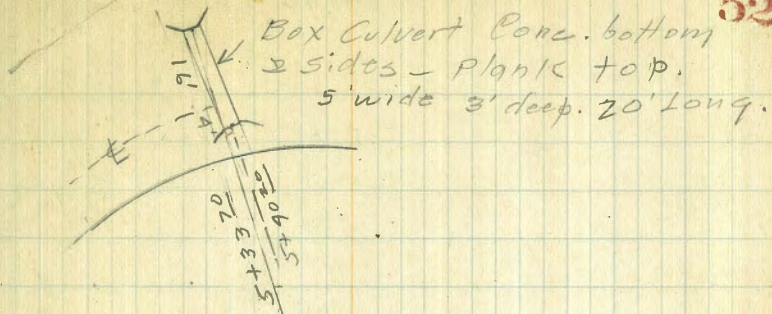 52
Box Culvert Conc. bottom
2 sides - Plank top.
5' wide 3' deep. 20' Long.
16'
4'
℄
5+33 20
5+40 20